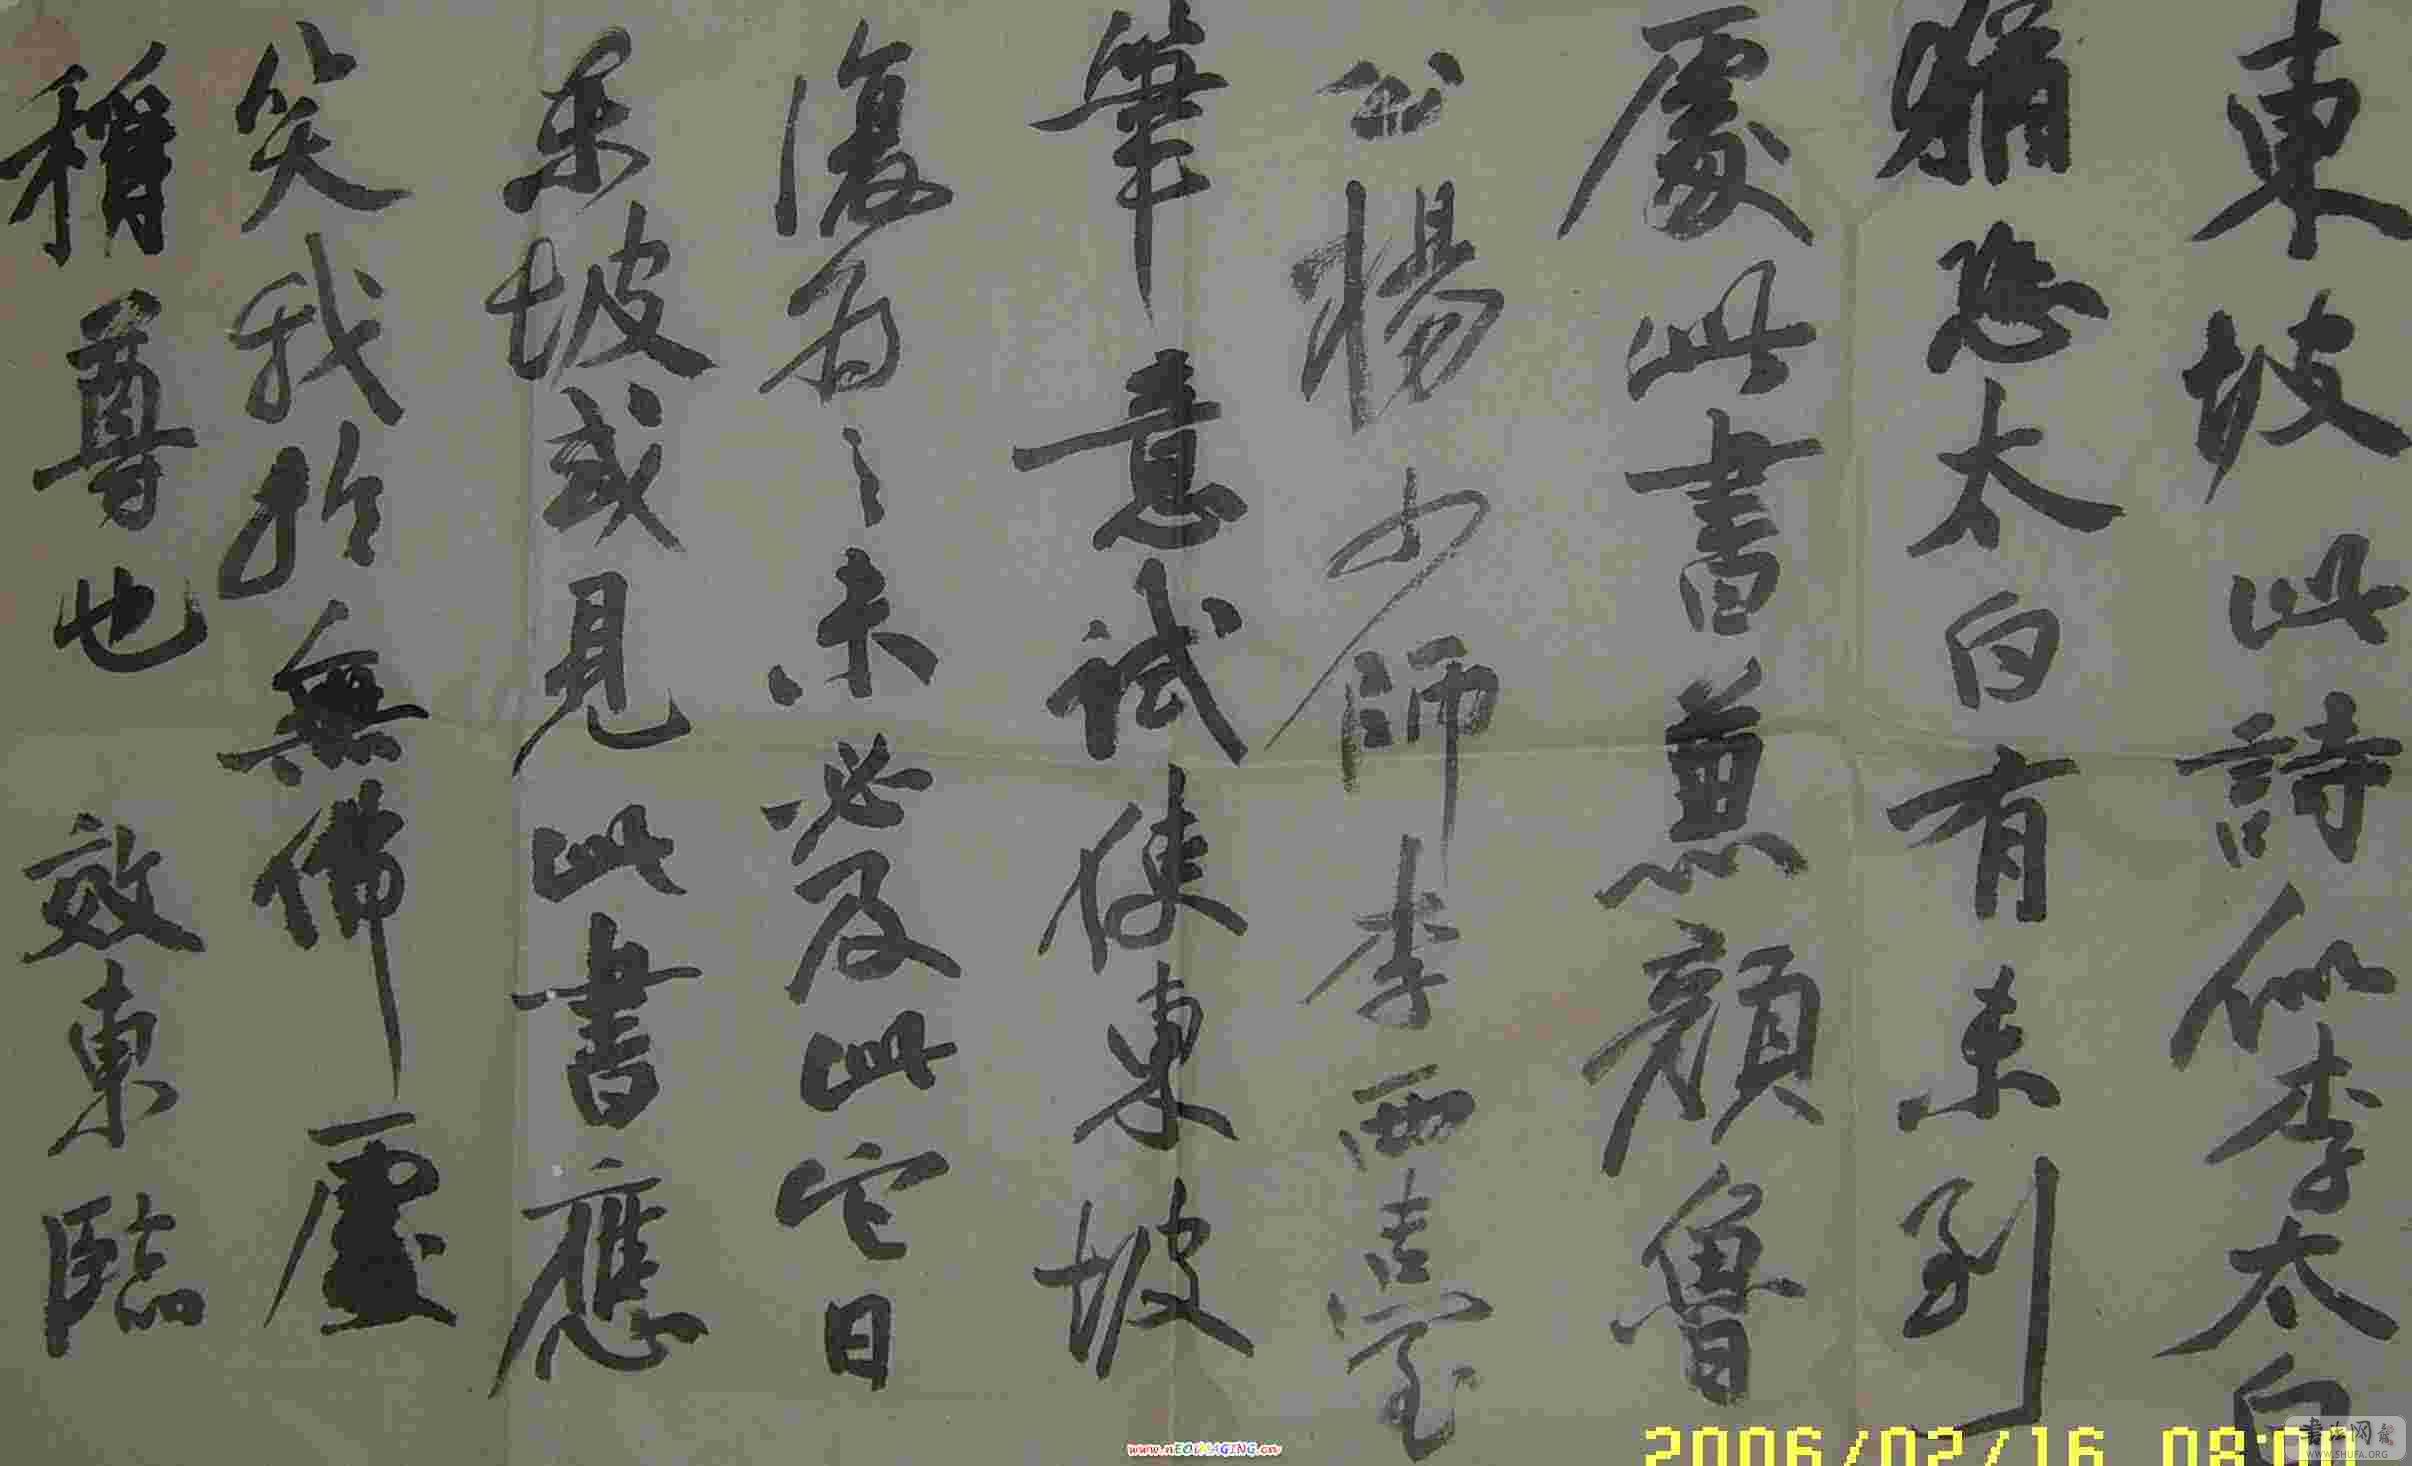 東坡此詩似李太白
猶恐太白有未到
處此書兼顏魯
公楊少師李西臺
筆意試使東坡
復為之未必及此它日
東坡或見此書應
笑我於無佛處
稱尊也 效東臨
www.nEOiMAGING.cn
2006/02/16 08:00
书法网
WWW.SHUFA.ORG